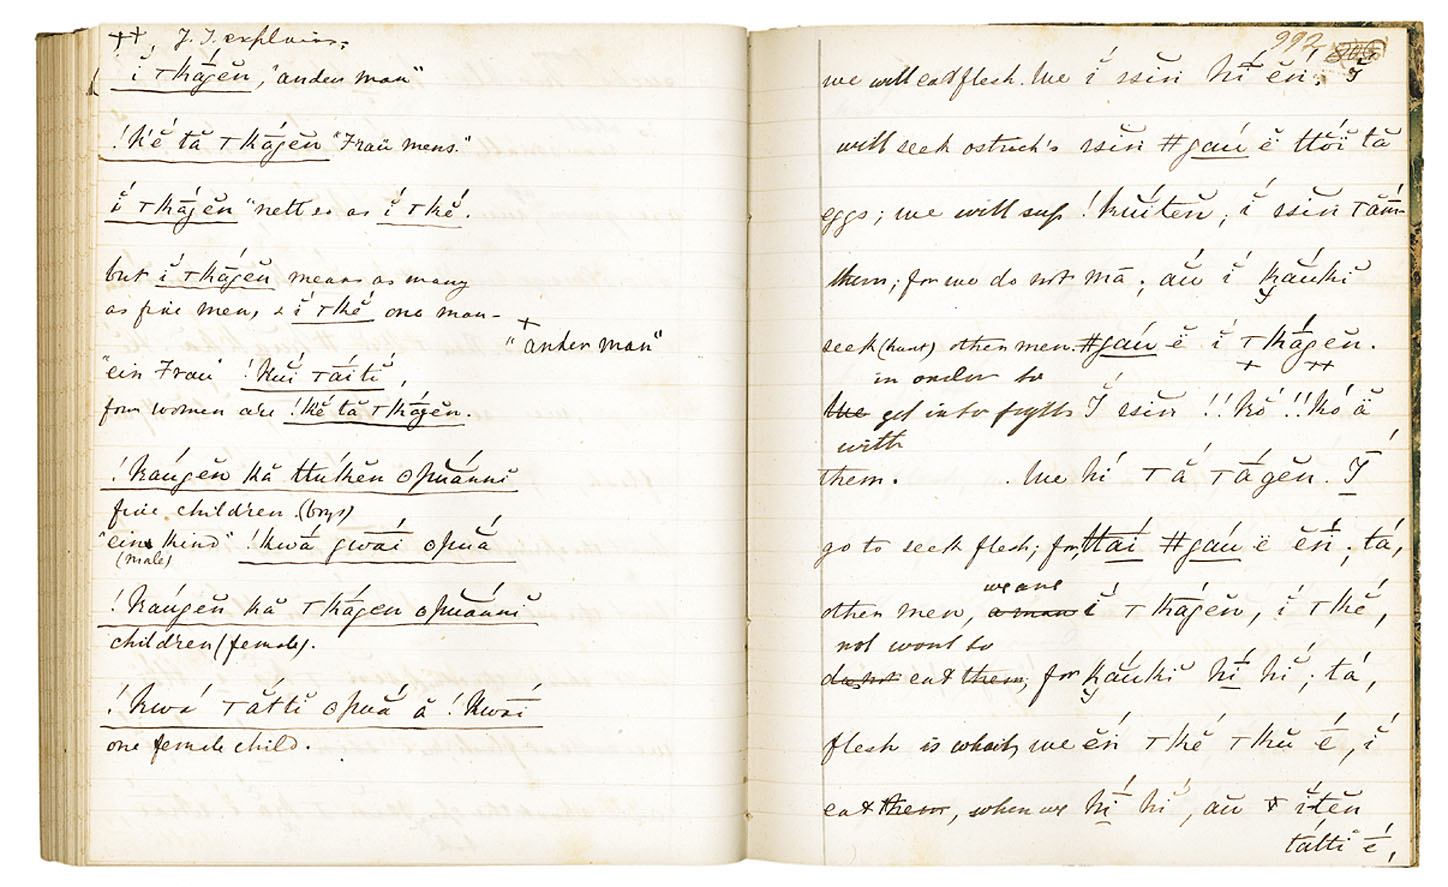 ++, J. T. explains;
ĭ́ ⊤kā́gĕn, "ander man"
!k'é̆ tă ⊤kā́gĕn "Frau mens."
ĭ́ ⊤kā́gĕn "nett so as ĭ́ ⊤ké̆.
but ĭ́ ⊤kā́gĕn means as many
as five men, & ĭ́ ⊤ké̆ one man-
+
"ander man"
"ein Frau" !kúĭ ⊤áĭtĭ,
four women are !ké̆ tă ⊤kā́gĕn.
!kaúgĕn kă ttúkĕn ʘpuắnnĭ
five children. (boys)
"ein kind" !kwắ gwāí ʘpuắ
(male)
!kaúgĕn kă ⊤kā́gen ʘpuắnnĭ
children (female).
!kwá ⊤áttĭ ʘpuắ ă !kwāí
one female child.
992
we will eat flesh. We ĭ́ ssĭn hī́ ĕń; Ĭ́
will seek ostrich's ssĭn ǂgaú ĕ ttóĭ tă
eggs; we will sup !kúĭtĕn; ĭ́ ssĭn ⊤ắm-
them; for we do not mā; aŭ ĭ́ k̯ắŭkĭ
seek (hunt) other men. ǂgaú ĕ ĭ́ ⊤kā́gĕn.
+ ++
in order to
get into fights Ĭ́ ssĭn !!kó̆ !!kó̆ ă
with
them. We hĭ́ ⊤ắ ⊤ā́gĕn. Ĭ́
go to seek flesh; for ttaí ǂgaú ĕ ĕń; tá,
we are
other men, a man ĭ́ ⊤kā́gĕn, ĭ́ ⊤ké̆,
not wont to
do not eat them; for k̯ắŭkĭ hī́ hĭ́; tá,
flesh is what we ĕń ⊤ké̆ ⊤kŭ é, ĭ́
eat them, when we hī́ hĭ́, aŭ ĭ́tĕn
táttĭ é,